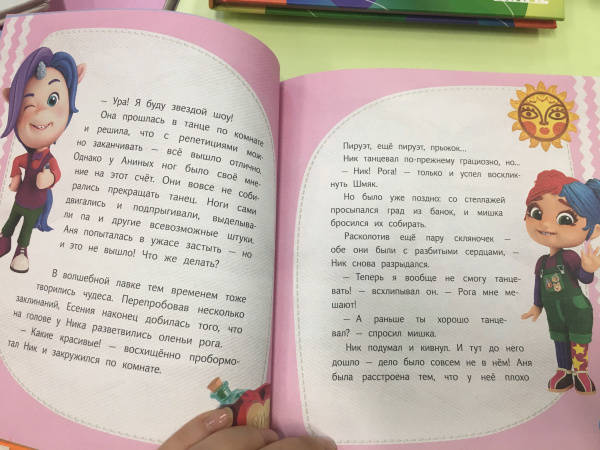 – Ура! Я буду звездой шоу!
Она прошлась в танце по комнате
и решила, что с репетициями мож-
но заканчивать – всё вышло отлично.
Однако у Аниных ног было своё мне-
ние на этот счёт. Они вовсе не соби-
рались прекращать танец. Ноги сами
двигались и подпрыгивали, выделыва-
ли па и другие всевозможные штуки.
Аня попыталась в ужасе застыть – но
и это не вышло! Что же делать?
В волшебной лавке тем временем тоже
творились чудеса. Перепробовав несколько
заклинаний, Есения наконец добилась того, что
на голове у Ника разветвились оленьи рога.
– Какие красивые! – восхищённо пробормо-
тал Ник и закружился по комнате.
Пируэт, ещё пируэт, прыжок...
Ник танцевал по-прежнему грациозно, но...
– Ник! Рога! – только и успел восклик-
нуть Шмяк.
Но было уже поздно: со стеллажей
просыпался град из банок, и мишка
бросился их собирать.
Расколотив ещё пару скляночек –
обе они были с разбитыми сердцами, –
Ник снова разрыдался.
– Теперь я вообще не смогу танце-
вать! – всхлипывал он. – Рога мне ме-
шают!
– А раньше ты хорошо танце-
вал? – спросил мишка.
Ник подумал и кивнул. И тут до него
дошло – дело было совсем не в нём! Аня
была расстроена тем, что у неё плохо